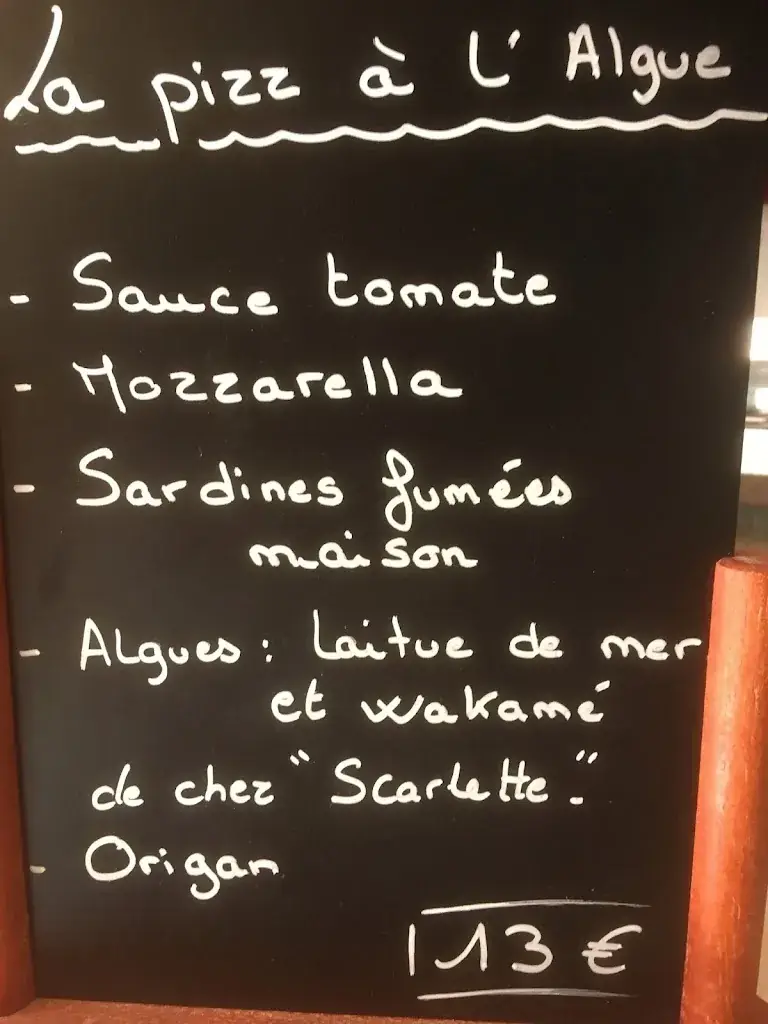 La pizz à l'Algue
- Sauce tomate
- Mozzarella
- Sardines fumées
maison
- Algues : laitue de mer
et wakamé
de chez "Scarlette."
- Origan
13 €